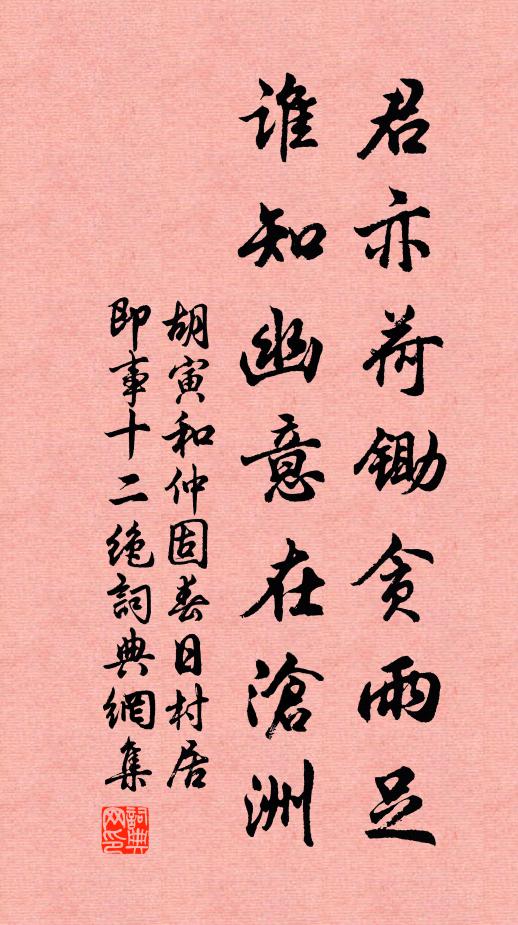 君亦荷鋤貪雨足
誰知幽意在滄洲
胡寅和仲固春日村居
即事十二絶詞典網集
詞典网印